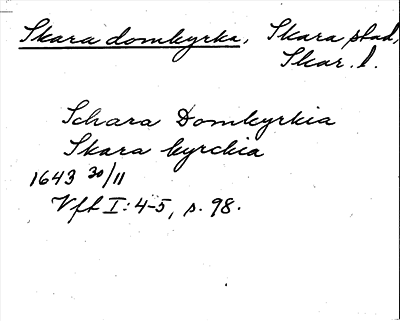 Skara domkyrka, Skara stad,
Skar. l.
Schara Domkyrkia
Skara kyrckia
1643 30/11
Vft I:4-5, s. 98.